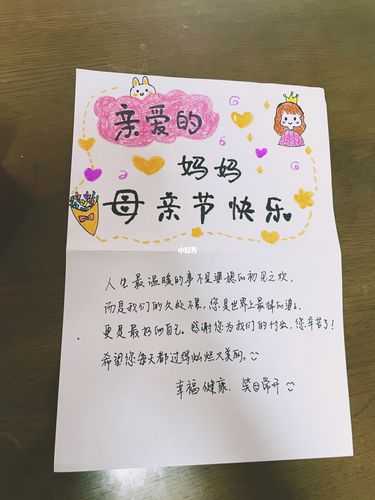 亲爱的
妈妈
母亲节快乐
小红书
人生最温暖的事不是婆媳的初见之欢，
而是我们的久处不厌，您是世界上最棒的婆婆，
更是最好的自己。感谢您为我们的付出，您辛苦了！
希望您每天都过得灿烂又美丽。
幸福健康，笑口常开